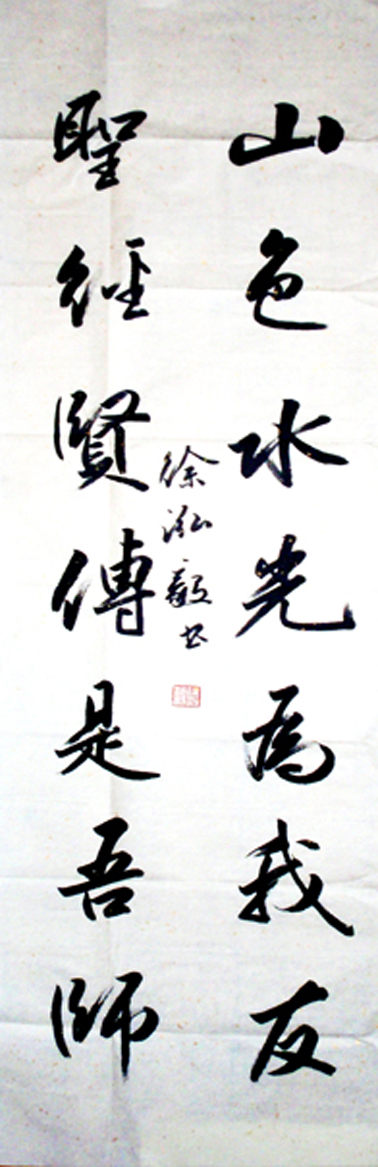 山色水光為我友
聖經賢傳是吾師
徐泓毅书